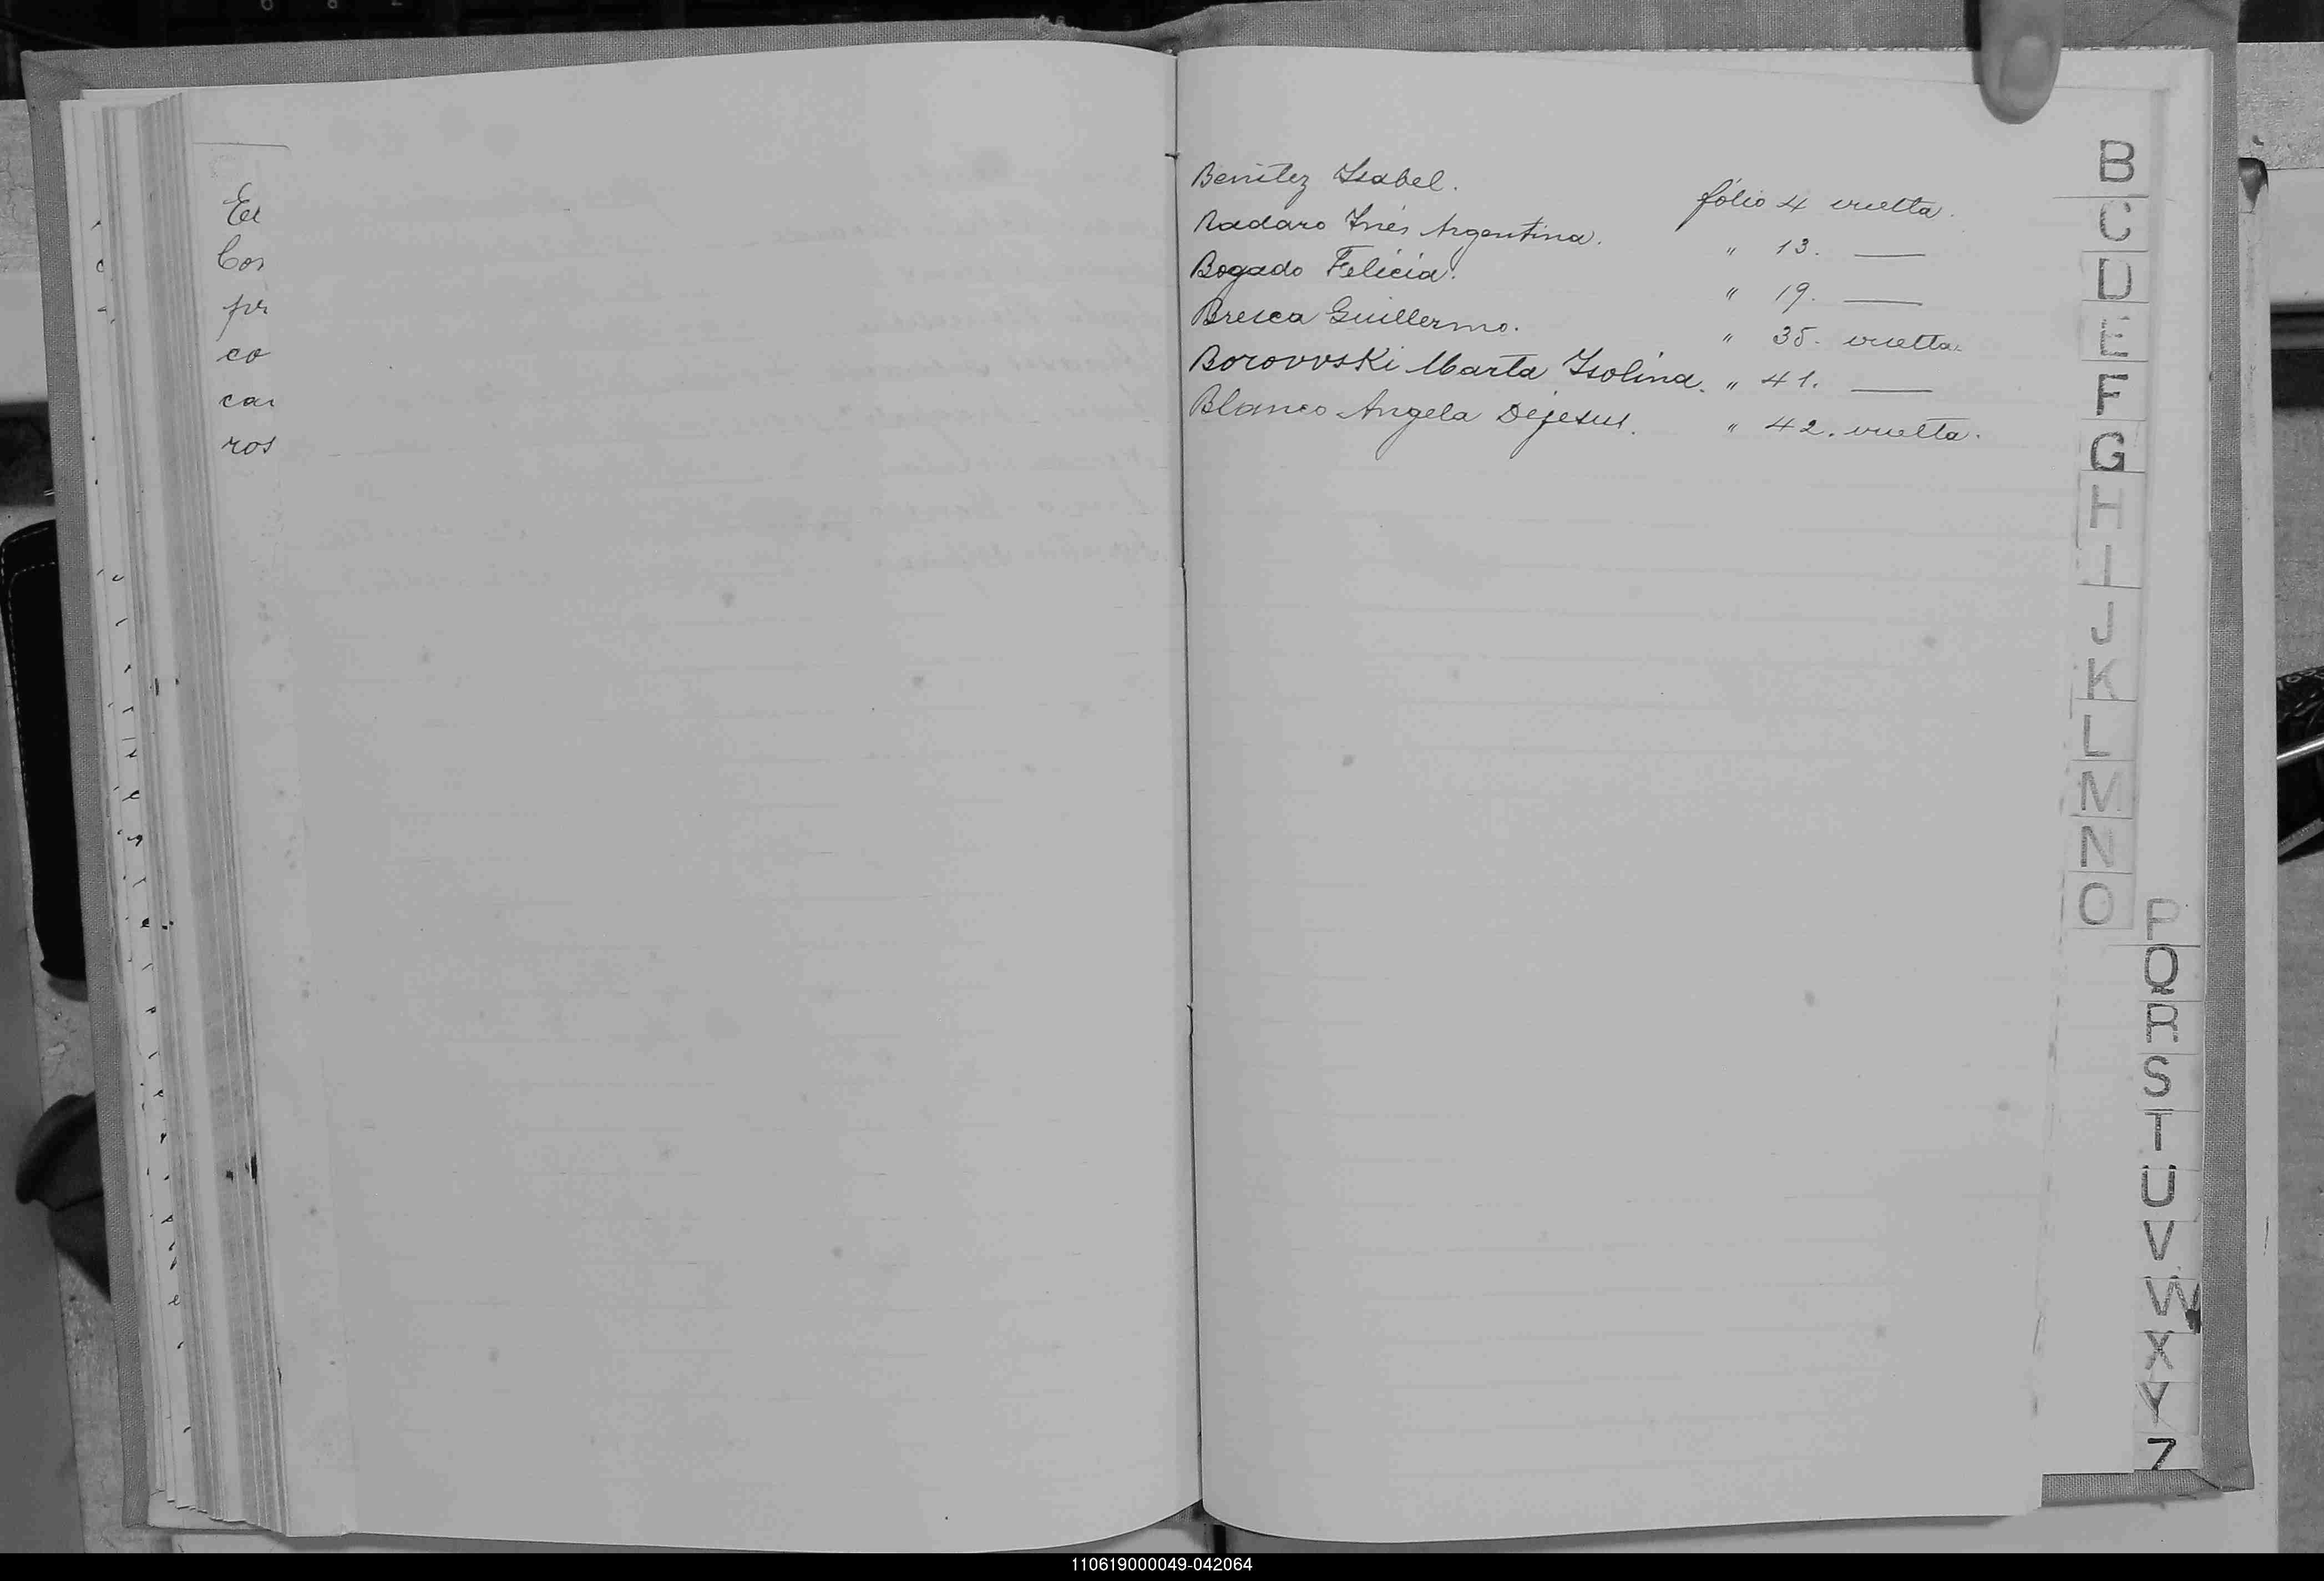 El
Cor
pr
co
car
ros
Benitez Isabel. folio 4 vuelta.
Badaro Inés Argentina. " 13. ——
Bogado Felicia. " 19. ——
Bresca Guillermo. " 35. vuelta.
Borovvski Marta Isolina. " 41. ——
Blanco Angela Dejesus. " 42. vuelta.
B
C
D
E
F
G
H
I
J
K
L
M
N
O
P
Q
R
S
T
U
V
W
X
Y
Z
110619000049-042064